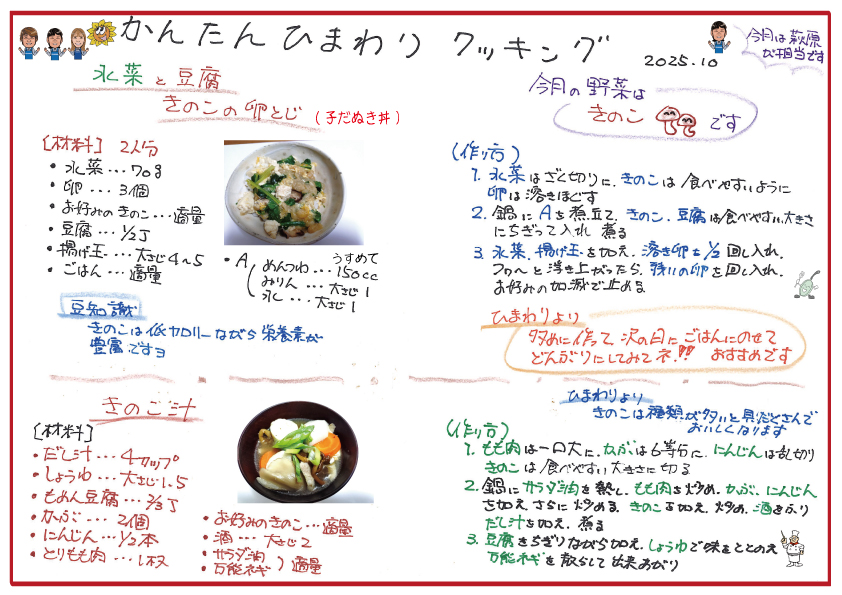 かんたん ひまわり クッキング
2025.10
今月は萩原
が担当です
水菜と豆腐
きのこの卵とじ (子だぬき丼)
今月の野菜は
きのこ です
[材料] 2人分
・水菜…70g
・卵…3個
・お好みのきのこ…適量
・豆腐…1/2丁
・揚げ玉…大さじ4〜5
・ごはん…適量
・A めんつゆ…150cc うすめて
みりん…大さじ1
水…大さじ1
豆知識
きのこは低カロリーながら栄養素が
豊富ですョ
(作り方)
1. 水菜はざく切りに、きのこは食べやすいように
卵は溶きほぐす
2. 鍋にAを煮立て、きのこ、豆腐は食べやすい大きさ
にちぎって入れ 煮る
3. 水菜、揚げ玉を加え、溶き卵を1/2回し入れ、
フワ〜と浮き上がったら、残りの卵を回し入れ、
お好みの加減で止める
ひまわりより
多めに作って、次の日にごはんにのせて
どんぶりにしてみてネ!! おすすめです
きのこ汁
[材料]
・だし汁…4カップ
・しょうゆ…大さじ1.5
・もめん豆腐…2/3丁
・かぶ…2個
・にんじん…1/2本
・とりもも肉…1枚
・お好みのきのこ…適量
・酒…大さじ2
・サラダ油
・万能ネギ ) 適量
ひまわりより
きのこは種類が多いと具だくさんで
おいしくなります
(作り方)
1. もも肉は一口大に、かぶは6等分に、にんじんは乱切り
きのこは食べやすい大きさに切る
2. 鍋にサラダ油を熱し、もも肉を炒め、かぶ、にんじん
を加え、さらに炒める、きのこを加え、炒め、酒をふり
だし汁を加え、煮る
3. 豆腐をちぎりながら加え、しょうゆで味をととのえ
万能ネギを散らして出来あがり